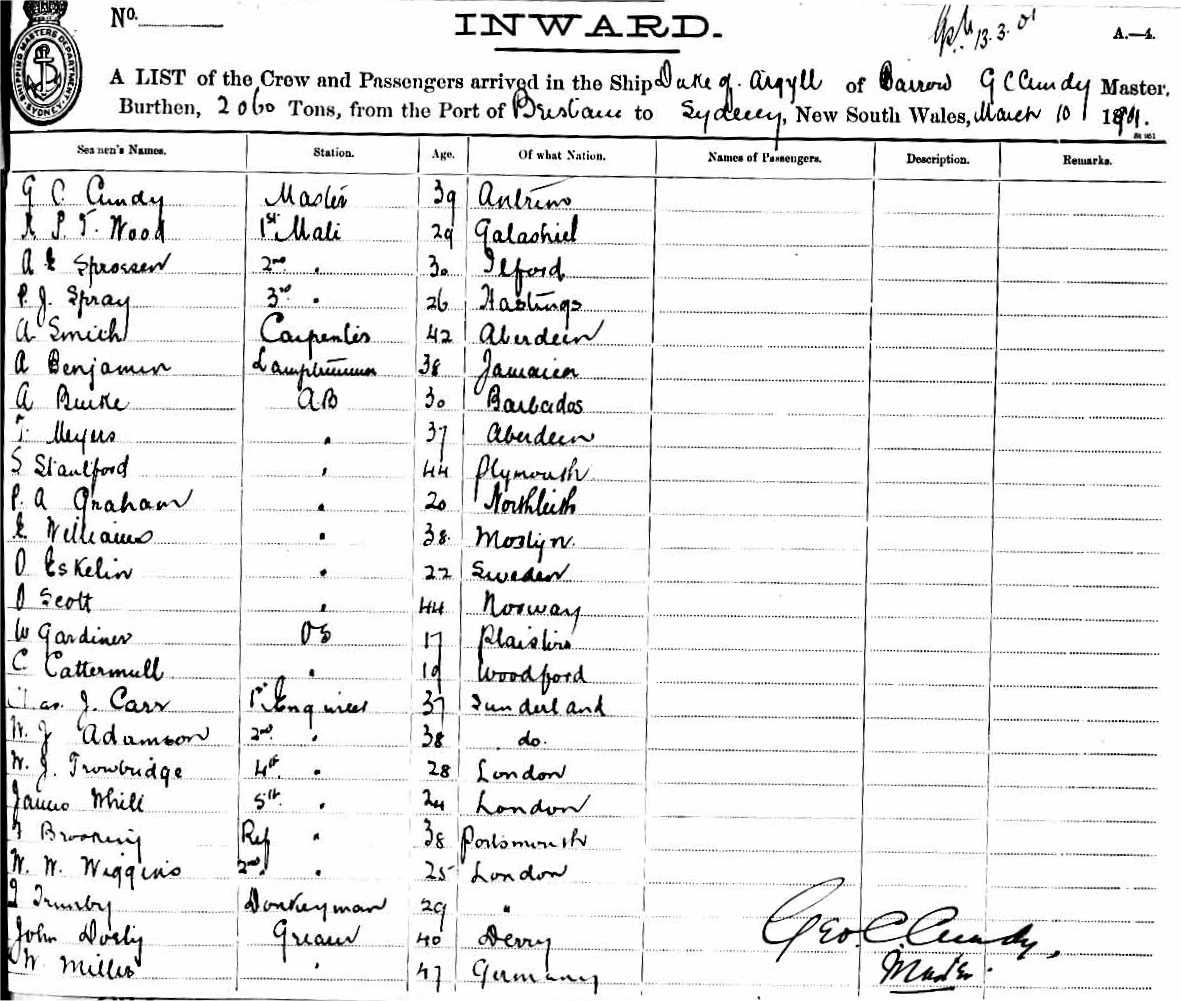 No.
INWARD.
13.3.01
A.—4.
SHIPPING MASTERS DEPARTMENT SYDNEY
A LIST of the Crew and Passengers arrived in the Ship Duke of Argyll of Barrow G C Cundy Master,
Burthen, 2060 Tons, from the Port of Brisbane to Sydney, New South Wales, March 10 1901.
Seamen's Names. Station. Age. Of what Nation. Names of Passengers. Description. Remarks.
G C Cundy Master 39 Antrim
R P T Wood 1st Mate 29 Galashiel
A E Sprossen 2nd " 30 Ilford
P. J. Spray 3rd " 26 Hastings
A Smith Carpenter 42 Aberdeen
A Benjamin Lamptrimmer 38 Jamaica
A Burke AB 30 Barbados
T. Meyers " 37 Aberdeen
S Stanlford " 44 Plymouth
P. A Graham " 20 Northleith
E Williams " 38 Mostyn.
O Eskelin " 22 Sweden
O Scott " 44 Norway
W Gardiner OS 17 Plaistow
C Cattermull " 19 Woodford
Chas. J. Carr 1st Engineer 37 Sunderland
W. J Adamson 2nd " 38 do.
W. J. Trowbridge 4th " 28 London
James White 5th " 24 London
Brooking Ref " 38 Portsmouth
W. W. Wiggins 2nd " 25 London
Donkeyman 29 "
John Greaser 40 Derry
W. Miller " 47 Germany
Geo. C. Cundy,
Master.